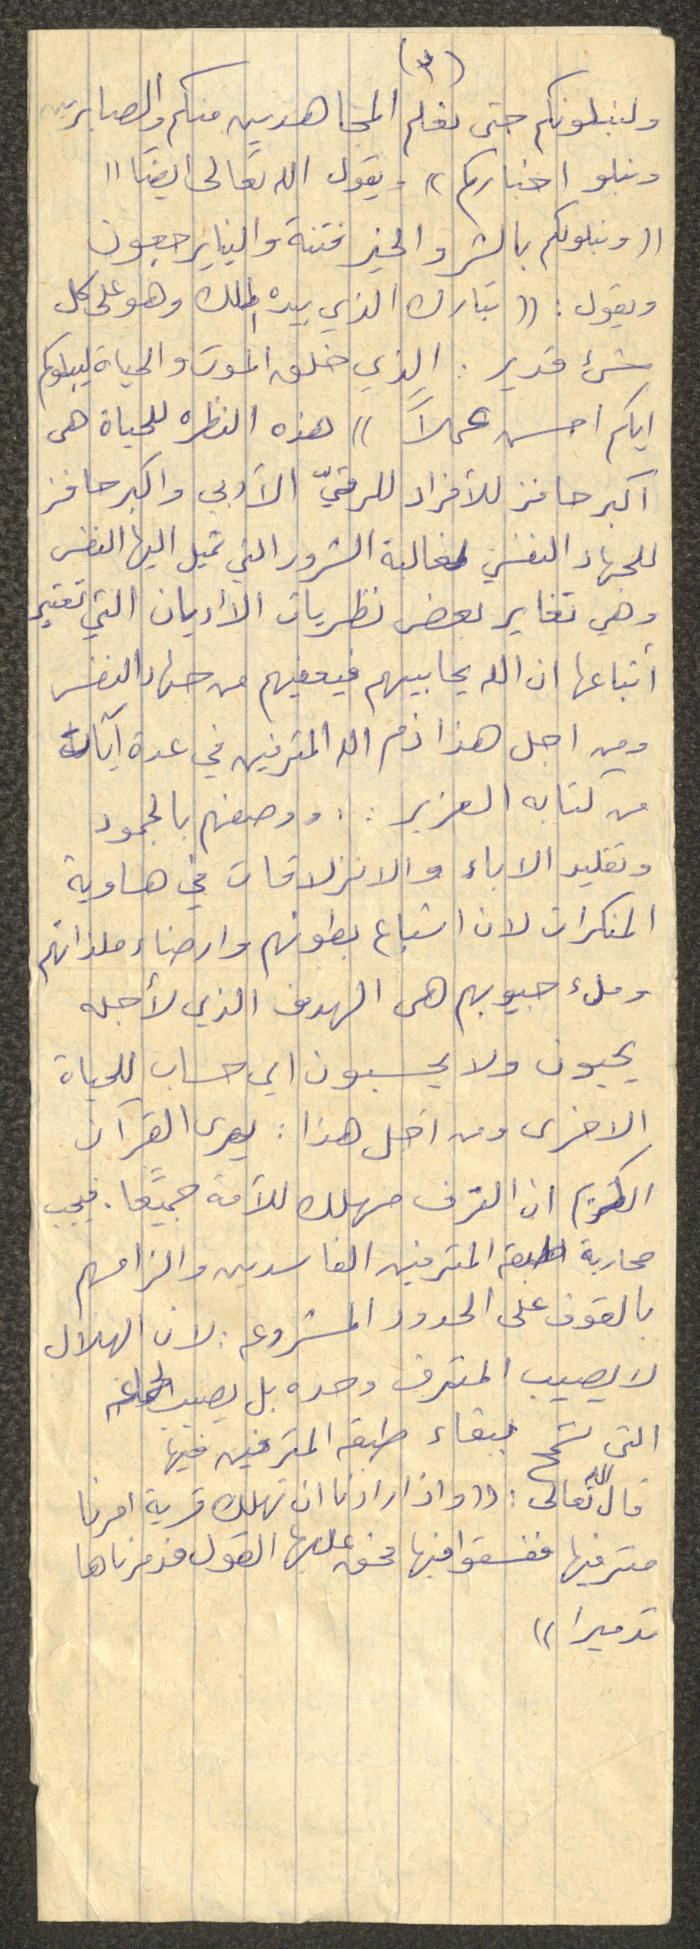 (٣)
ولنبلونكم حتى نعلم المجاهدين منكم والصابرين
ونبلو اخباركم » ويقول الله تعالى ايضًا "
(( ونبلوكم بالشر والخير فتنة والينا يرجعون
ويقول : (( تبارك الذي بيده الملك وهو على كل
شئ قدير : الذي خلق الموت والحياة ليبلوكم
ايكم احسن عملاً )) هذه النظره للحياة هى
أكبر حافز للأفراد للرقيّ الأدبي واكبر حافز
للجهاد النفسي لمغالبة الشرور التي تميل اليها النفس
وهي تغاير بعض نظريات الاديان التي تعتبر
أتباعها ان الله يحابيهم فيعفيهم من جهاد النفس
ومن اجل هذا ذم الله المترفين في عدة آيات
من كتابه العزيز : ووصفهم بالجمود
وتقليد الاباء والانزلاقات في هاوية
المنكرات لان اشباع بطونهم وارضاء ملذاتهم
وملء جيوبهم هى الهدف الذي لأجله
يحيون ولا يحسبون اي حساب للحياة
الاخرى ومن اجل هذا : يرى القرآن
الكريم ان الترف مهلك للأمة جميعًا . فيجب
محاربة طبقة المترفين الفاسدين والزامهم
بالقوف على الحدود المشروعه : لان الهلاك
لا يصيب المترف وحده بل يصيب الجماعه
التى تسمح ببقاء طبقه المترفين فيها
قال الله تعالى : (( واذا اردنا ان نهلك قرية امرنا
مترفيها ففسقوا فيها فحق عليها القول فدمرناها
تدميرا ))